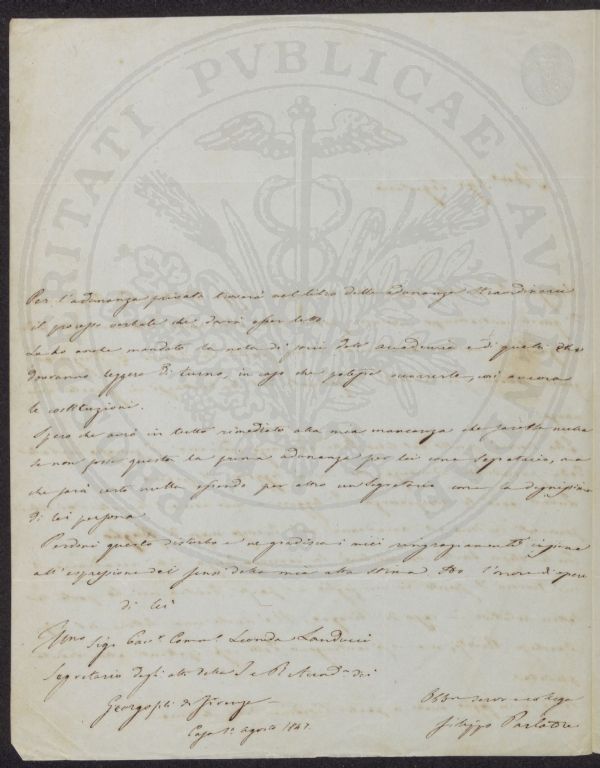 PROSPERITATI PVBLICAE AVGENDAE
Per l'adunanza privata troverà nel libro delle adunanze straordinarie
il processo verbale che dovrà esser letto.
Le ho anche mandato la nota di socii dell'Accademia e di quelli che
dovranno leggere di turno, in caso che potesse occorrerle, così ancora
le costituzioni.
Spero che avrò in tutto rimediato alla mia mancanza che sarebbe nulla
se non fosse questa la prima adunanza per lei come Segretario, ma
che sarà certo nulla essendo per altro un Segretario come la degnissima
di lei persona
Perdoni questo disturbo e ne gradisca i miei ringraziamenti insieme
all'espressione dei sensi della mia alta stima Ho l'onore di essere
di lei
Illmo Sigr Cavr Commr Leonida Landucci
Segretario degli atti della I e R Accad.a dei
Georgofili di Firenze
Casa 1° agosto 1847
Obbmo servo e collega
Filippo Parlatore